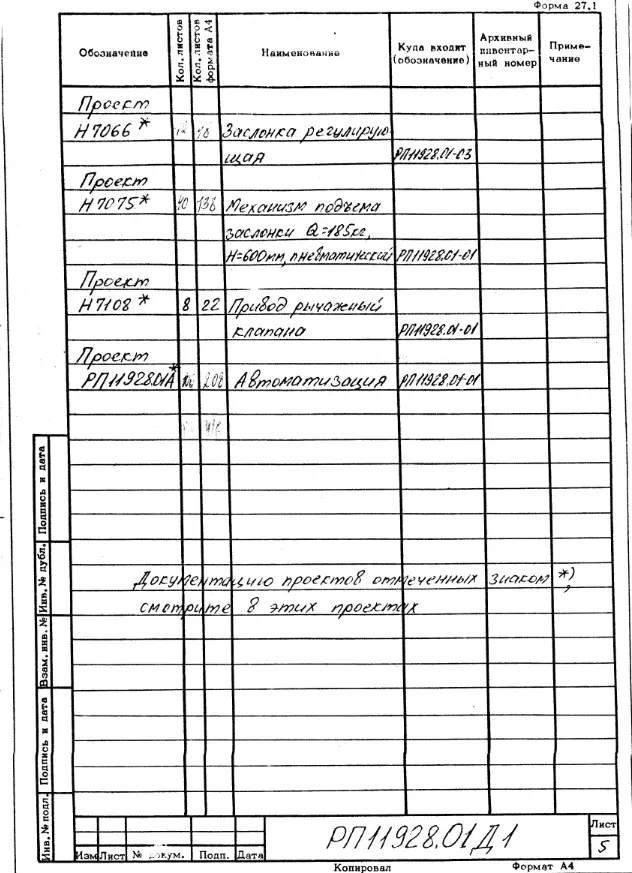 Форма 27.1
Обозначение
Кол. листов
Кол. листов формата А4
Наименование
Куда входит (обозначение)
Архивный инвентарный номер
Примечание
Проект
Н7066 *
Заслонка регулирую
щая РП11928.01-03
Проект
Н7075* 40 138 Механизм подъема
заслонки Q=185кг,
Н=600мм, пневматический РП11928.01-01
Проект
Н7108 * 8 22 Привод рычажный
клапана РП11928.01-01
Проект
РП11928.01А* 208 Автоматизация РП11928.01-01
Документацию проектов отмеченных знаком *),
смотрите в этих проектах
Подпись и дата
Инв. № дубл.
Взам. инв. №
Подпись и дата
Инв. № подл.
РП11928.01Д1
Лист
5
Изм Лист № докум. Подп. Дата
Копировал Формат А4